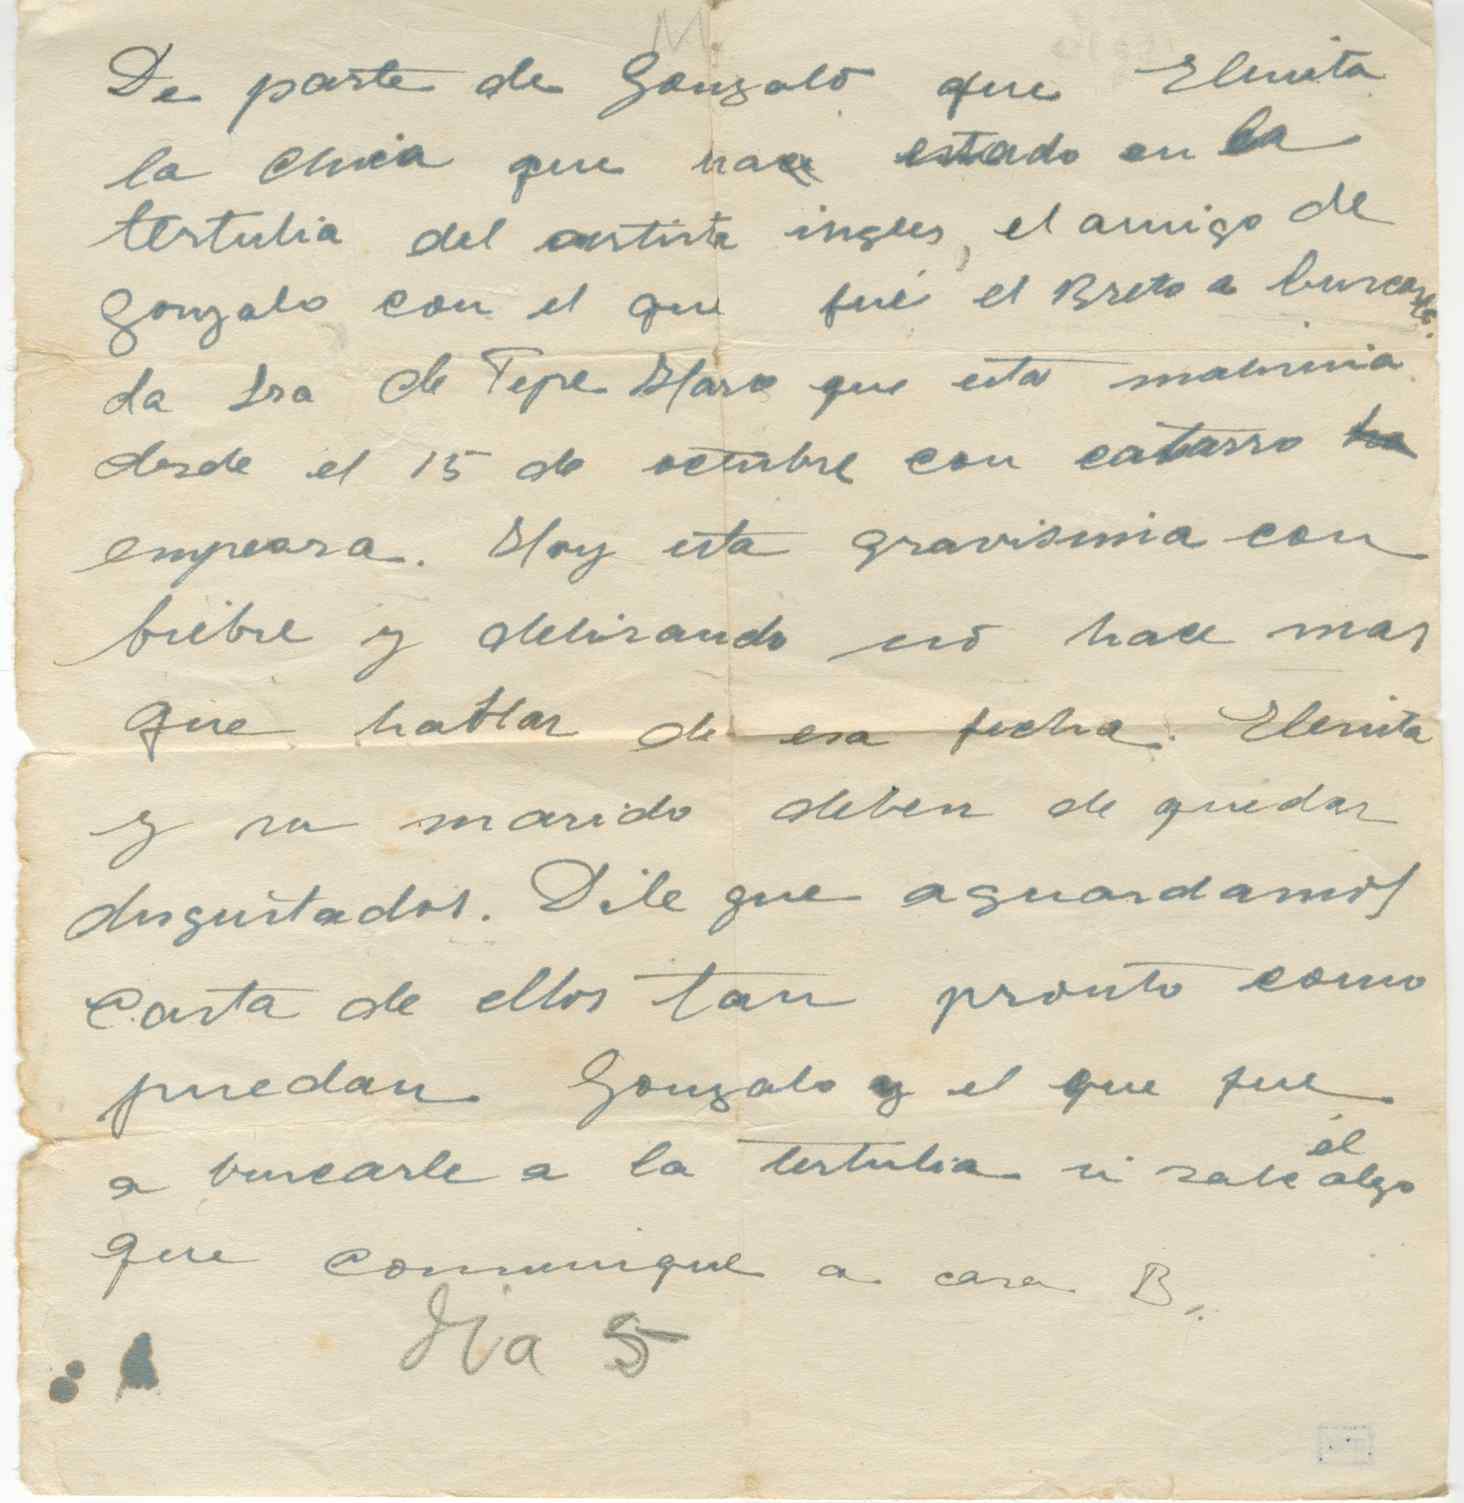 De parte de Gonzalo que Elenita
la chica que hace estado en la
tertulia del artista ingles, el amigo de
Gonzalo con el que fué el Breto a buscarle.
da Sra de Pepe Haro que esta malisima
desde el 15 de octubre con catarro ha
empeora. Hoy esta gravisima con
fiebre y delirando no hace mas
que hablar de esa fecha. Elenita
y su marido deben de quedar
disgustados. Dile que aguardamos
carta de ellos tan pronto como
puedan Gonzalo y el que fue
a buscarle a la tertulia si sabe él algo
que comunique a casa B.
Dia 5